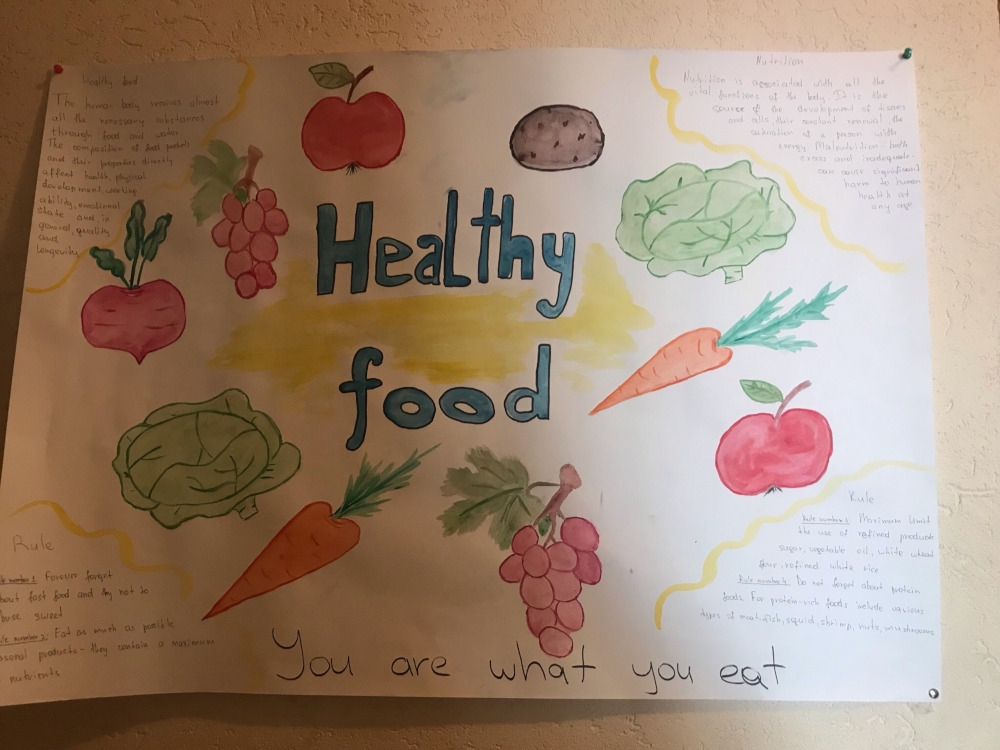 Healthy food
The human body receives almost
all the necessary substances
through food and water
The composition of food
and their properties directly
affect health, physical
development, working
ability, emotional
state and, in
general, quality
and
longevity
Nutrition
Nutrition is associated with all the
vital functions of the body. It is the
source of the development of
and cells, their constant renewal, the
of a person with
energy. Malnutrition - both
excess and inadequate
can cause significant
harm to human
health at
any age
Healthy
food
Rule
number 1: Forever forget
about fast food and try not to
sweet
number 2: Eat as much as possible
products - they contain a maximum
nutrients
Rule
Rule number 3: Maximum limit
the use of refined products
sugar, vegetable oil, white wheat
flour, refined white rice
Rule number 4: Do not forget about protein
foods. For protein-rich foods include various
types of meat, fish, squid, shrimp, nuts, mushrooms
You are what you eat